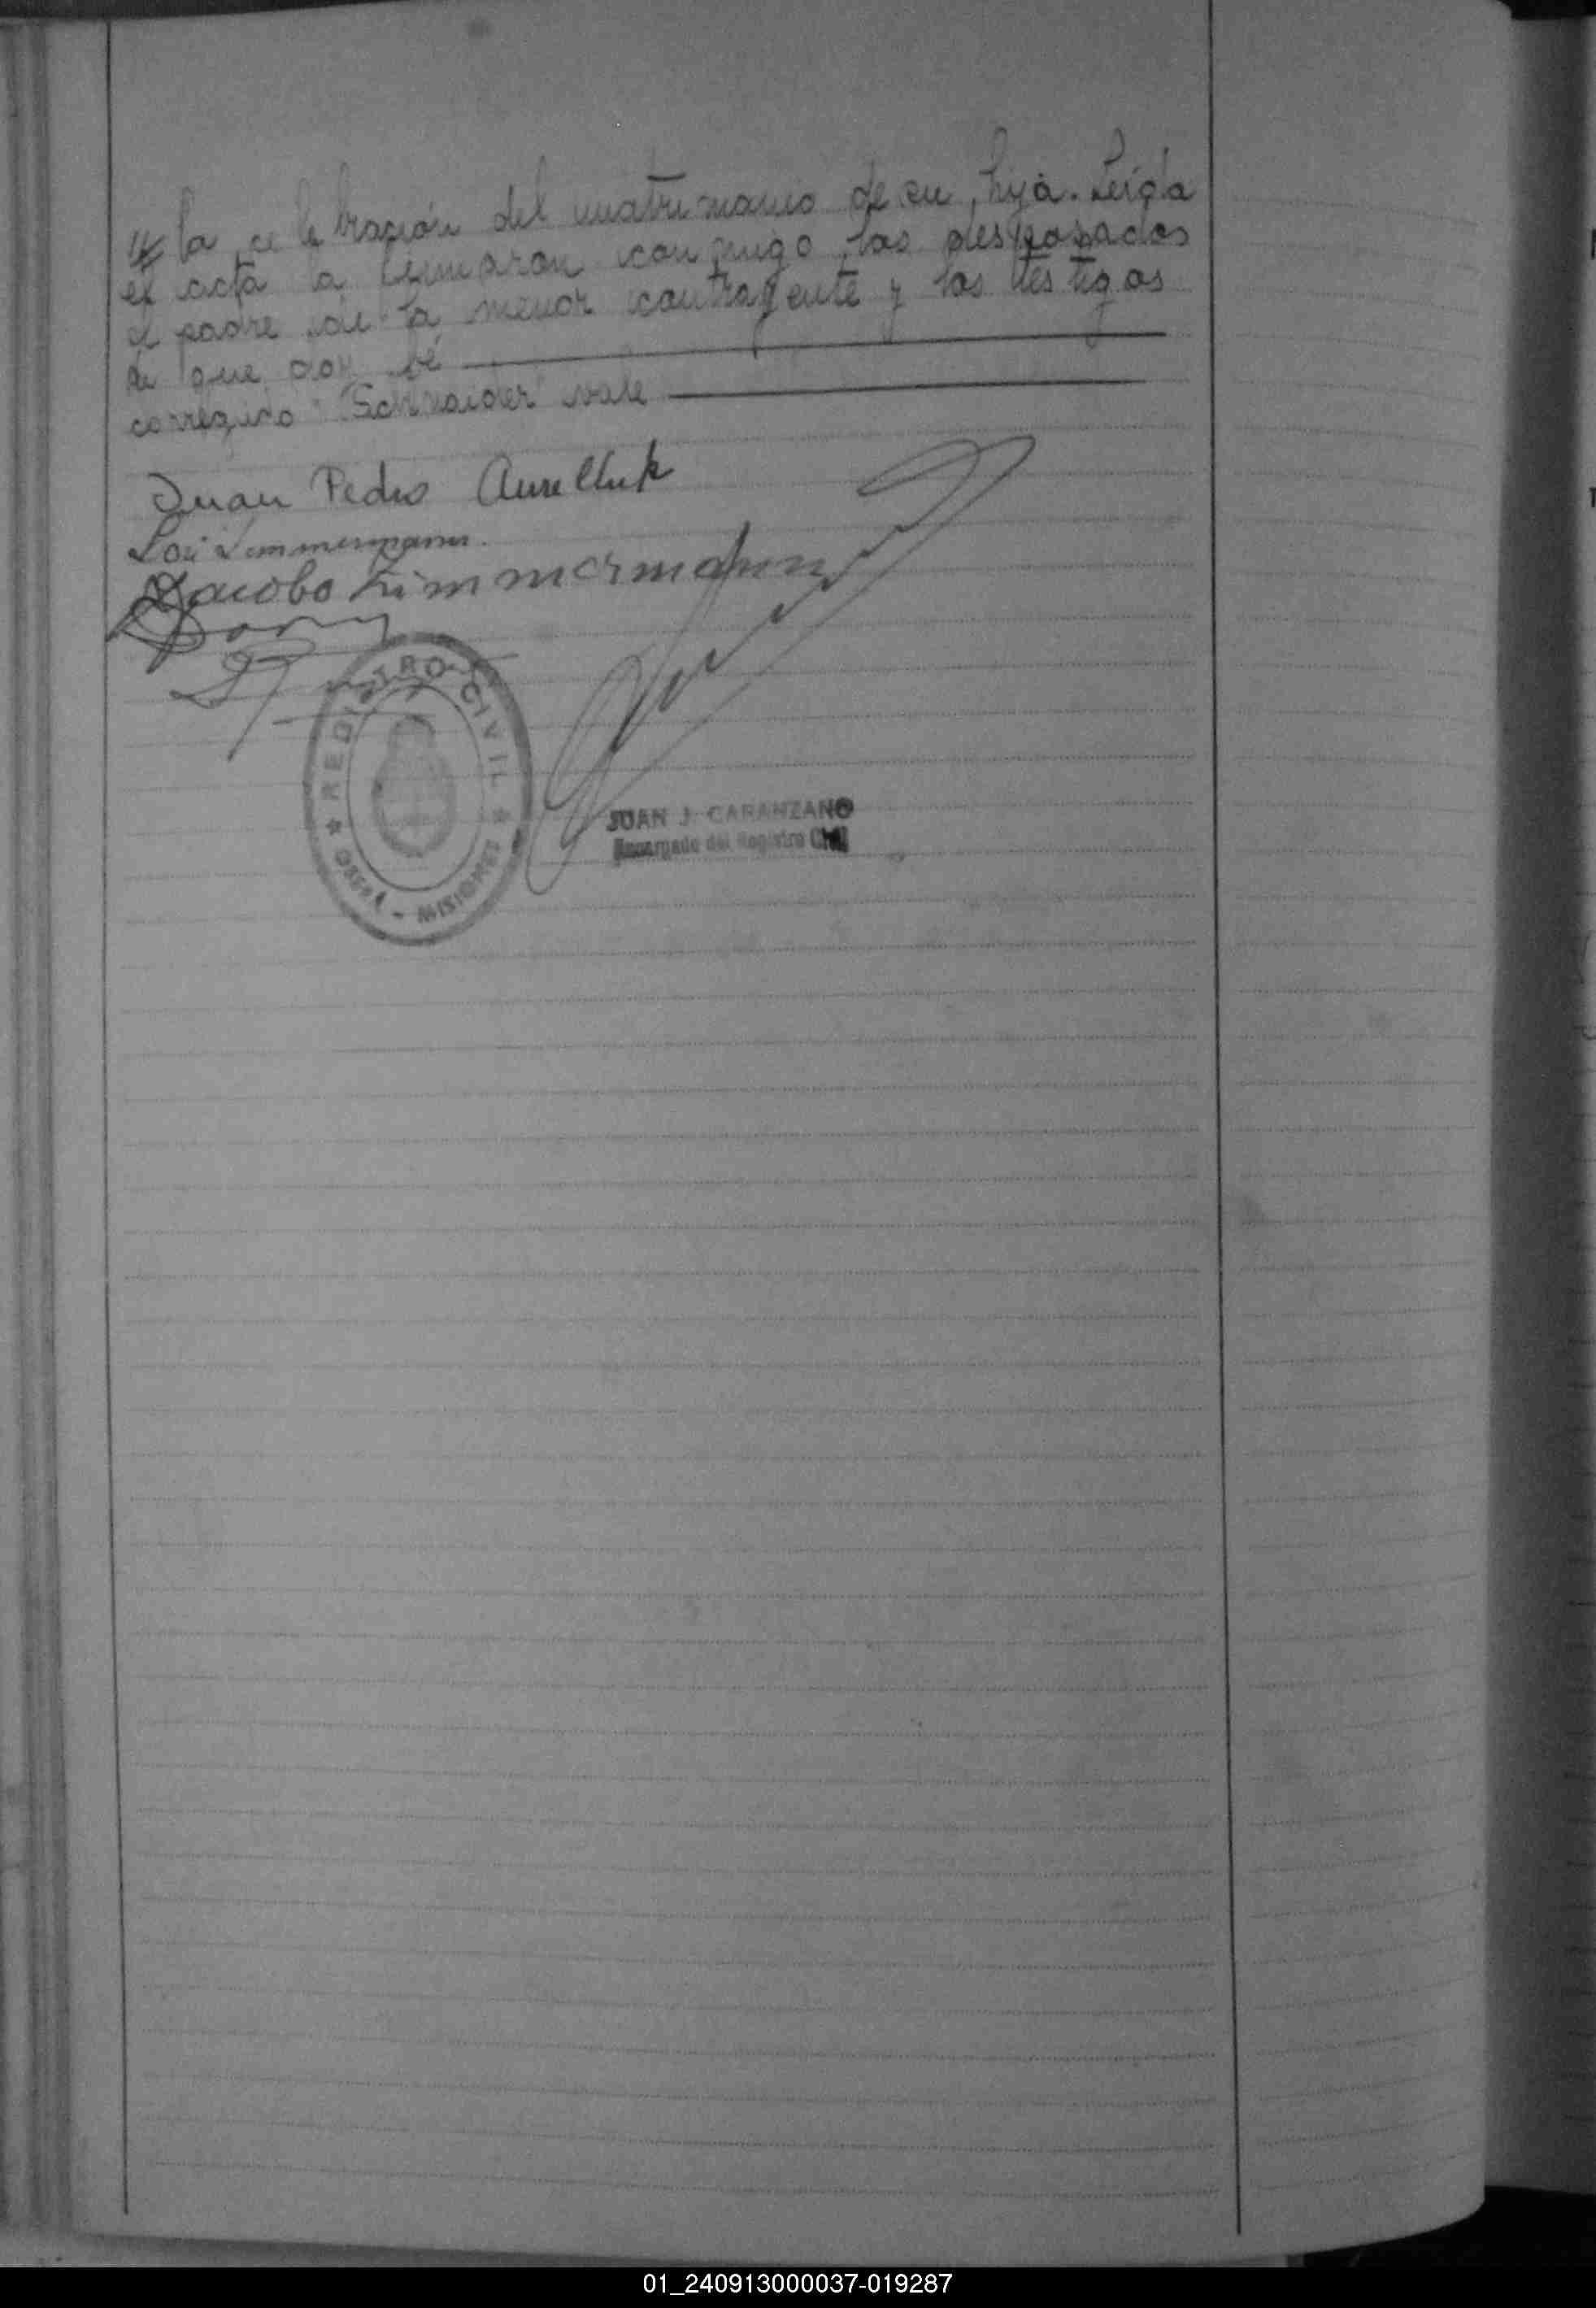 la celebración del matrimonio de su hija. Leída
el acta la firmaron conmigo, los desposados
el padre de la menor contrayente y los testigos
de que doy fé
corregido "Schnaider" vale
Juan Pedro
Zimmermann.
Jacobo Zimmermann
REGISTRO CIVIL
OBERÁ - MISIONES
JUAN J. CARANZANO
Encargado del Registro Civil
01_240913000037-019287